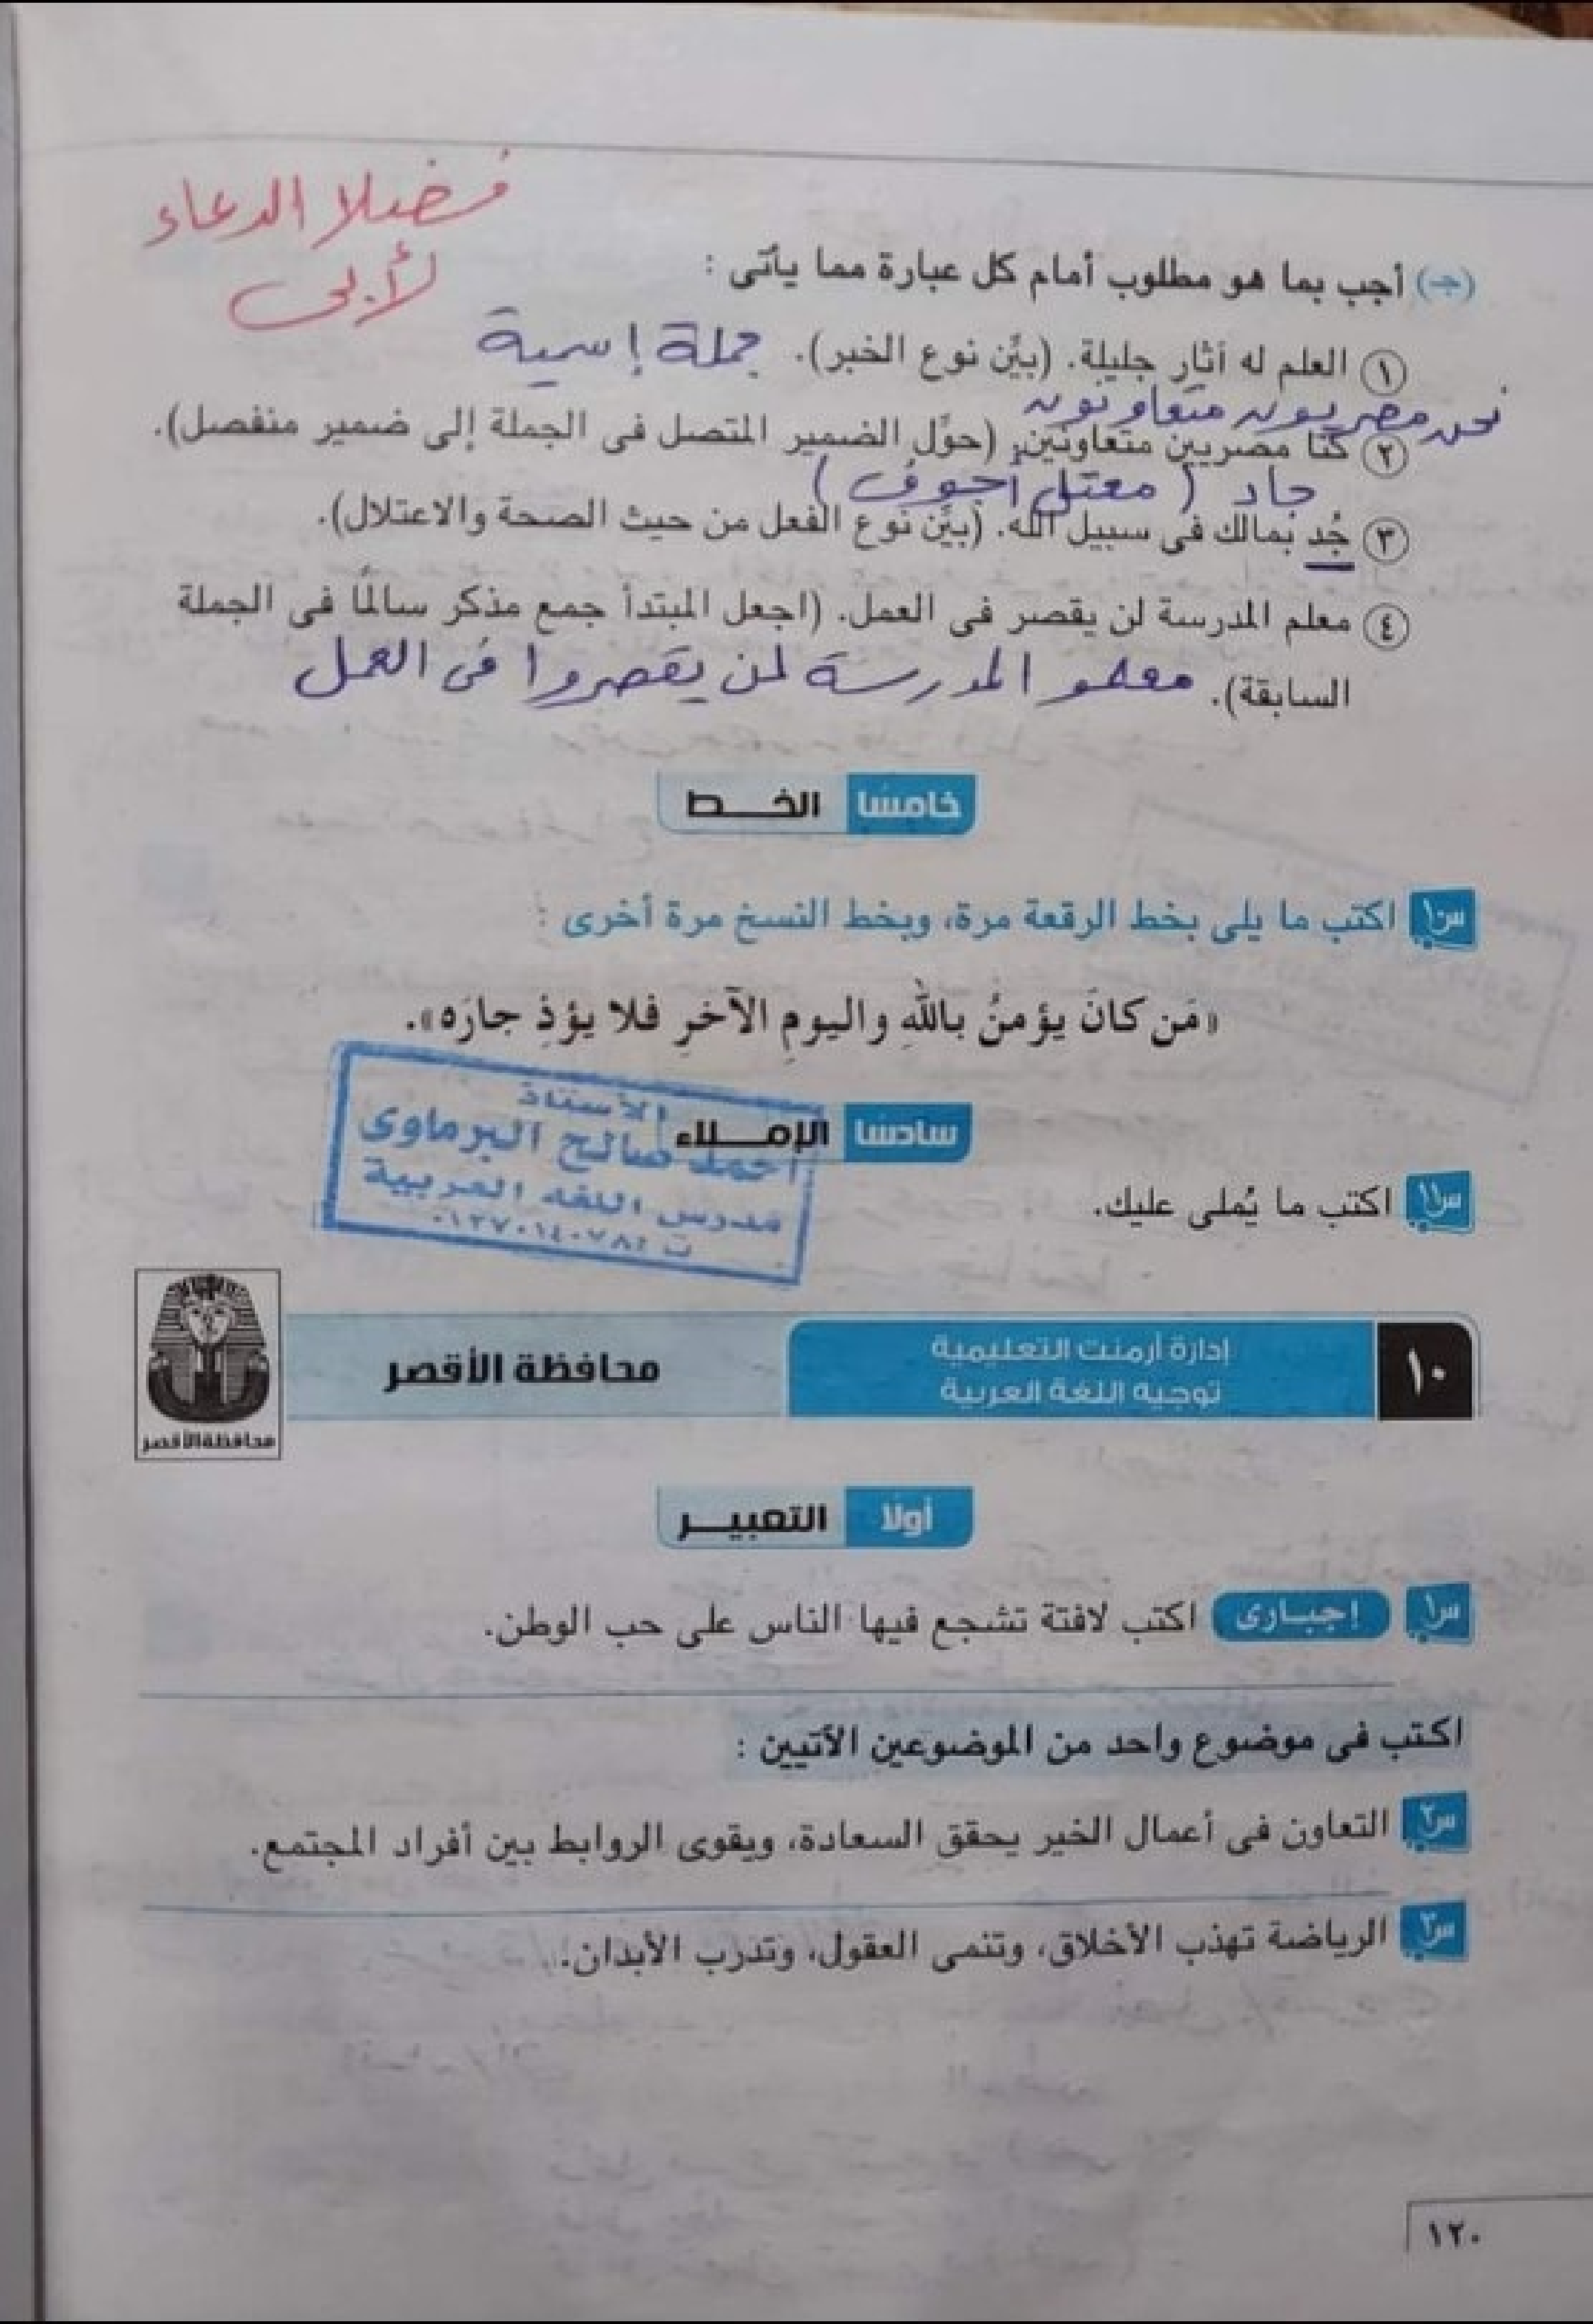 فضلا الدعاء
لأبى
(جـ) أجب بما هو مطلوب أمام كل عبارة مما يأتى :
١ العلم له أثار جليلة. (بيِّن نوع الخبر). جملة إسمية
نحن مصريون متعاونون
٢ كنا مصريين متعاونين. (حوِّل الضمير المتصل فى الجملة إلى ضمير منفصل).
جاد (معتل أجوف)
٣ جُد بمالك فى سبيل الله. (بيِّن نوع الفعل من حيث الصحة والاعتلال).
٤ معلم المدرسة لن يقصر فى العمل. (اجعل المبتدأ جمع مذكر سالمًا فى الجملة
السابقة). معلمو المدرسة لن يقصروا فى العمل
خامسًا الخـــط
س١٠ اكتب ما يلى بخط الرقعة مرة، وبخط النسخ مرة أخرى :
«مَن كانَ يؤمنُ باللهِ واليومِ الآخرِ فلا يؤذِ جارَه».
سادسًا الإمـــلاء
الأستاذ
أحمد صالح البرماوى
مدرس اللغة العربية
ت : ٠١٢٧٠١٤٠٧٨
س١١ اكتب ما يُملى عليك.
١٠ إدارة أرمنت التعليمية
توجيه اللغة العربية
محافظة الأقصر
محافظة الأقصر
أولًا التعبيـــر
س١ إجبـارى اكتب لافتة تشجع فيها الناس على حب الوطن.
اكتب فى موضوع واحد من الموضوعين الأتيين :
س٢ التعاون فى أعمال الخير يحقق السعادة، ويقوى الروابط بين أفراد المجتمع.
س٣ الرياضة تهذب الأخلاق، وتنمى العقول، وتدرب الأبدان.
١٢٠